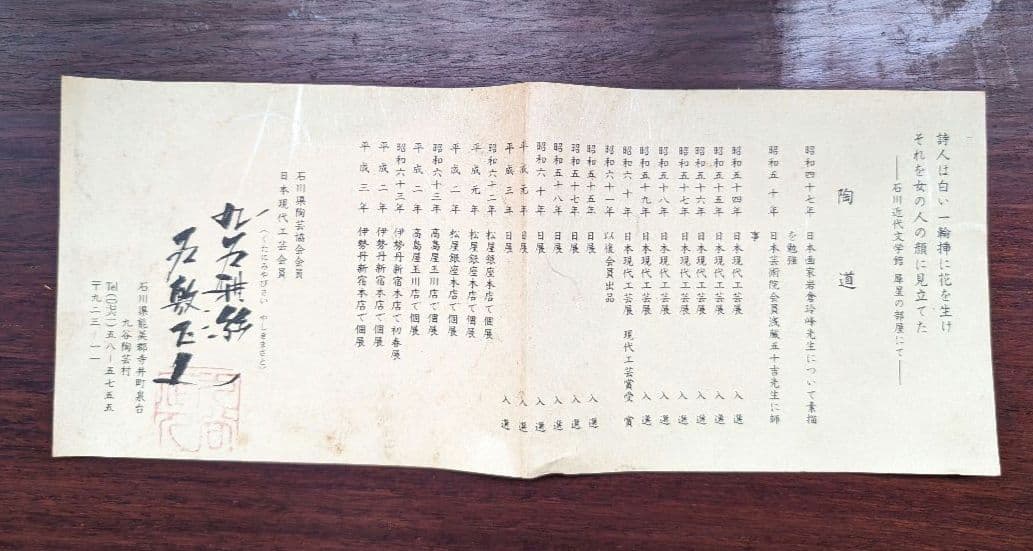 詩人は白い一輪挿に花を生け
それを女の人の顔に見立てた
――石川近代文学館 犀星の部屋にて――
陶道
昭和四十七年 日本画家岩倉玲峰先生について素描
を勉強
昭和五十年 日本芸術院会員浅蔵五十吉先生に師
事
昭和五十四年 日本現代工芸展 入選
昭和五十五年 日本現代工芸展 入選
昭和五十六年 日本現代工芸展 入選
昭和五十八年 日本現代工芸展 入選
昭和五十九年 日本現代工芸展 入選
昭和六十年 日本現代工芸展 現代工芸賞受賞
昭和六十一年 以後会員出品
昭和五十五年 日展 入選
昭和五十七年 日展 入選
昭和五十八年 日展 入選
昭和六十年 日展 入選
平成元年 日展 入選
平成三年 日展 入選
昭和六十二年 松屋銀座本店で個展
平成元年 松屋銀座本店で個展
平成二年 松屋銀座本店で個展
昭和六十三年 高島屋玉川店で個展
平成二年 高島屋玉川店で個展
昭和六十三年 伊勢丹新宿本店で初春展
平成二年 伊勢丹新宿本店で個展
平成三年 伊勢丹新宿本店で個展
石川県陶芸協会会員
日本現代工芸会員
(くたにみやびさい やしきまさと)
九谷雅彩
石川県能美郡寺井町泉台
九谷陶芸村
五八―五七五五
〒九二三―一一